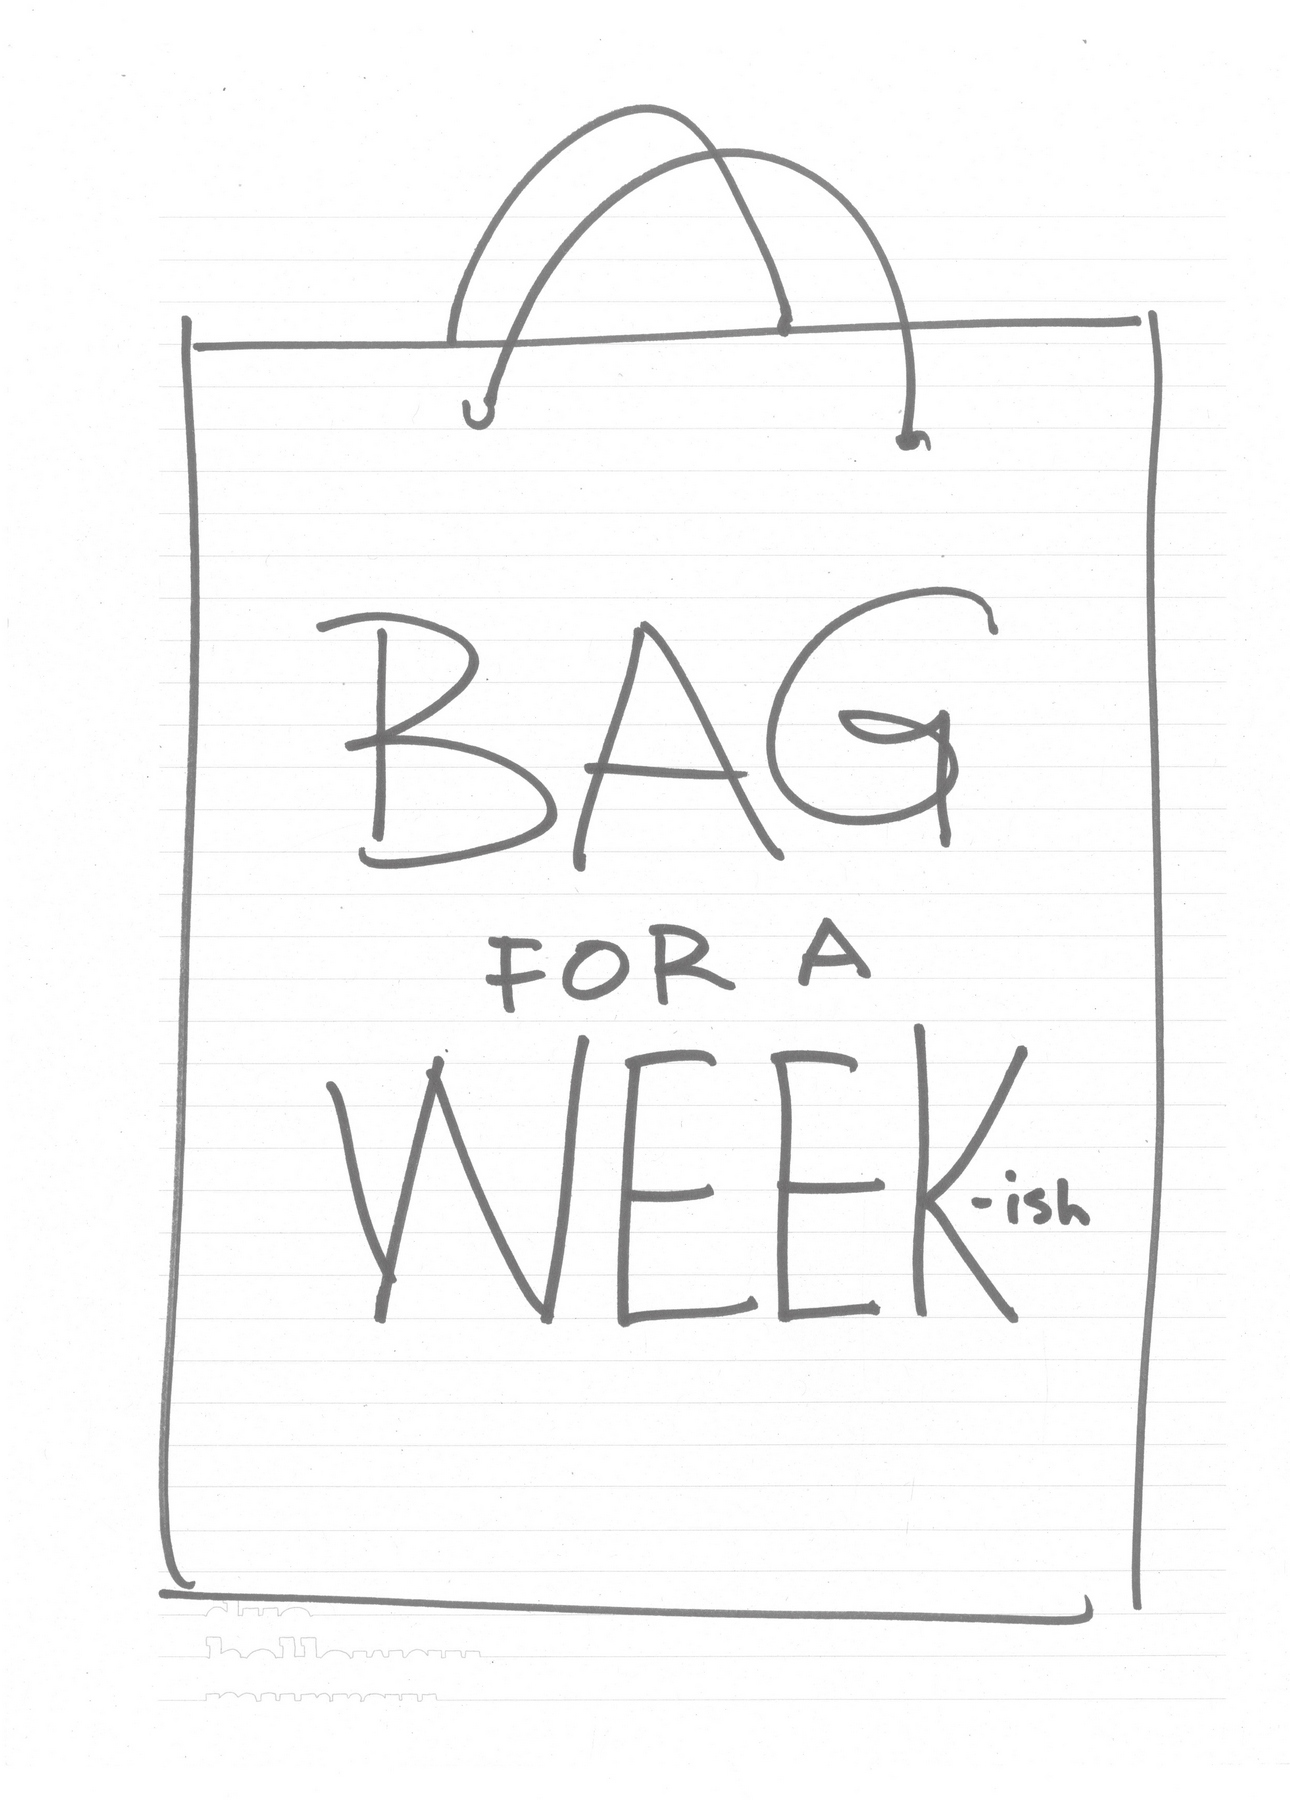 BAG
FOR A
WEEK-ish